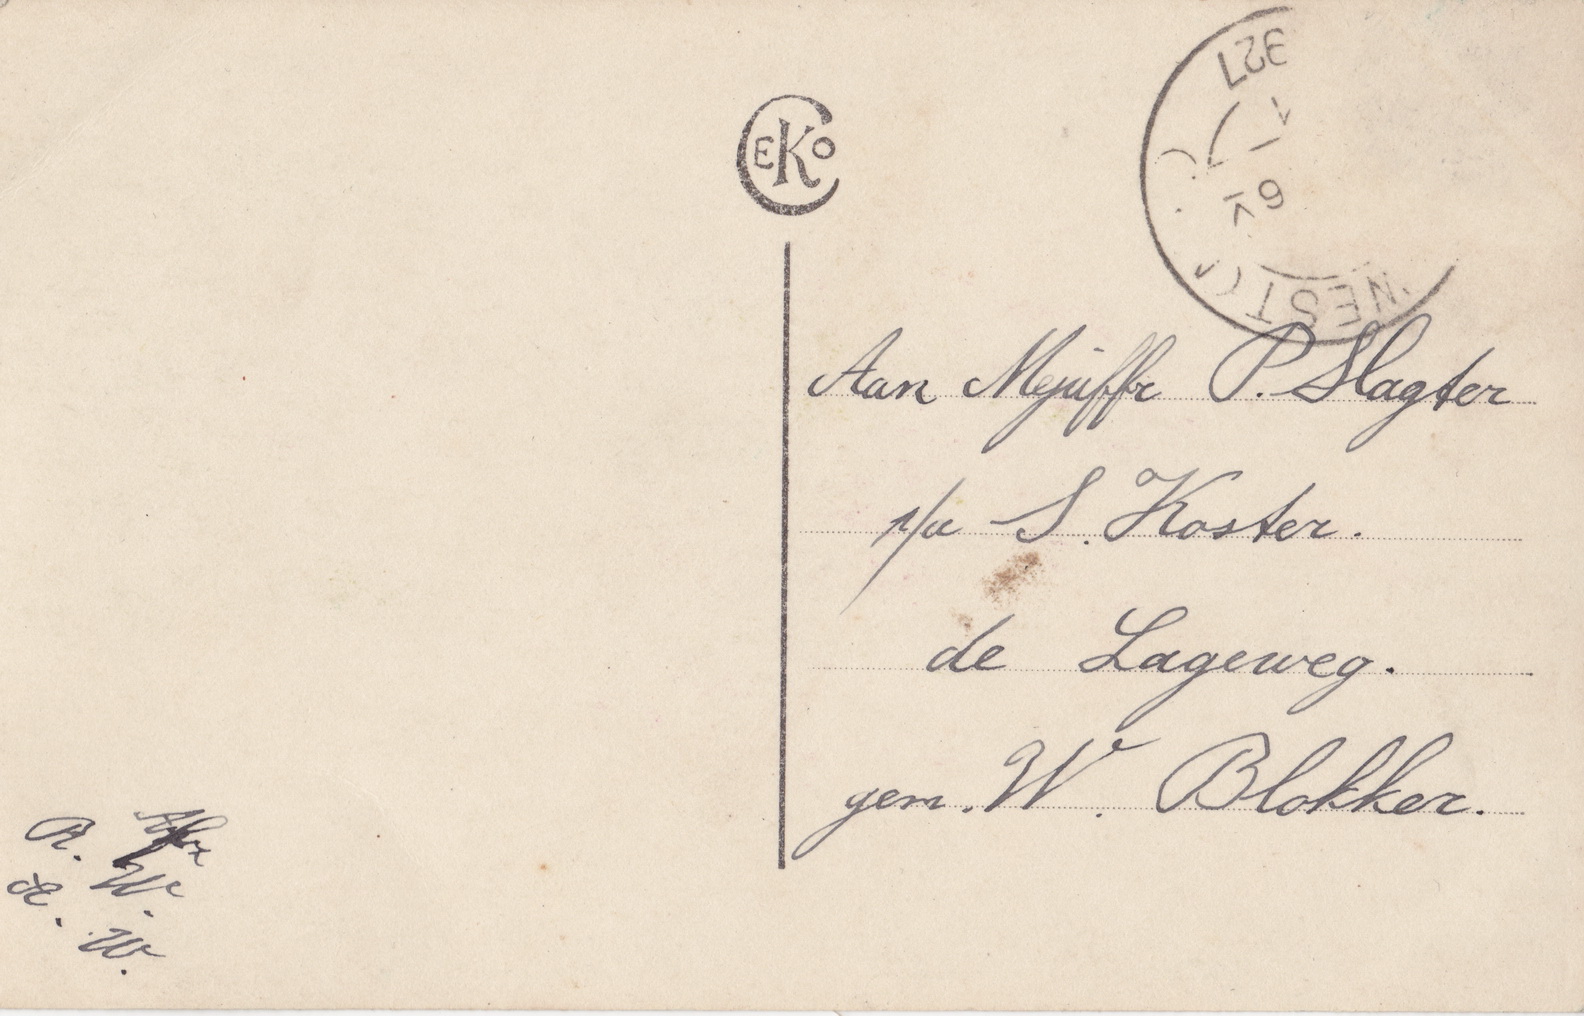 CEKO
327
1
6 V
NEST
Aan Mejuffr P. Slagter
p/a S. Koster.
de Lageweg.
gem. W. Blokker.
Afz
R. W.
W.